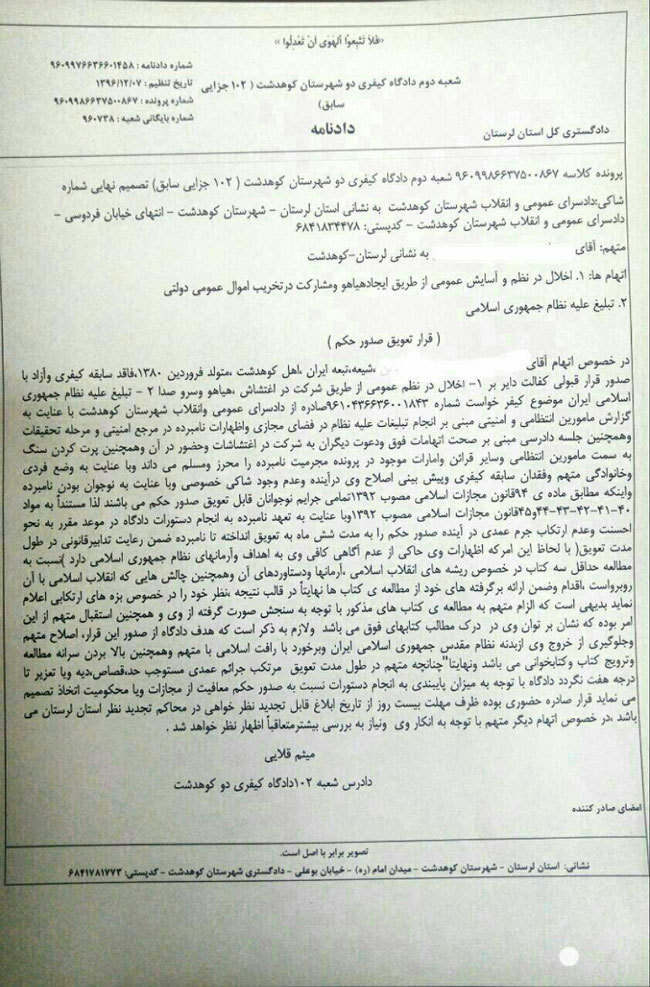 «فَلاٰ تَتَّبِعُوا اَلْهَوىٰ أَنْ تَعْدِلُوا»
شماره دادنامه : ۹۶۰۹۹۷۶۶۳۶۶۰۱۴۵۸
تاریخ تنظیم : ۱۳۹۶/۱۲/۰۷
شماره پرونده : ۹۶۰۹۹۸۶۶۳۷۵۰۰۸۶۷
شماره بایگانی شعبه : ۹۶۰۷۳۸
شعبه دوم دادگاه کیفری دو شهرستان کوهدشت ( ۱۰۲ جزایی
سابق)
دادنامه
دادگستری کل استان لرستان
پرونده کلاسه ۹۶۰۹۹۸۶۶۳۷۵۰۰۸۶۷ شعبه دوم دادگاه کیفری دو شهرستان کوهدشت ( ۱۰۲ جزایی سابق) تصمیم نهایی شماره
شاکی:دادسرای عمومی و انقلاب شهرستان کوهدشت به نشانی استان لرستان - شهرستان کوهدشت - انتهای خیابان فردوسی -
دادسرای عمومی و انقلاب شهرستان کوهدشت - کدپستی: ۶۸۴۱۸۳۴۴۷۸
متهم: آقای به نشانی لرستان-کوهدشت
اتهام ها: ۱. اخلال در نظم و آسایش عمومی از طریق ایجادهیاهو ومشارکت درتخریب اموال عمومی دولتی
۲. تبلیغ علیه نظام جمهوری اسلامی
( قرار تعویق صدور حکم )
در خصوص اتهام آقای ،شیعه،تبعه ایران ،اهل کوهدشت ،متولد فروردین ۱۳۸۰،فاقد سابقه کیفری وآزاد با
صدور قرار قبولی کفالت دایر بر ۱- اخلال در نظم عمومی از طریق شرکت در اغتشاش ،هیاهو وسرو صدا ۲ - تبلیغ علیه نظام جمهوری
اسلامی ایران موضوع کیفر خواست شماره ۹۶۱۰۴۳۶۶۳۶۰۰۱۸۴۳صادره از دادسرای عمومی وانقلاب شهرستان کوهدشت با عنایت به
گزارش مامورین انتظامی و امنیتی مبنی بر انجام تبلیغات علیه نظام در فضای مجازی واظهارات نامبرده در مرجع امنیتی و مرحله تحقیقات
وهمچنین جلسه دادرسی مبنی بر صحت اتهامات فوق ودعوت دیگران به شرکت در اغتشاشات وحضور در آن وهمچنین پرت کردن سنگ
به سمت مامورین انتظامی وسایر قرائن وامارات موجود در پرونده مجرمیت نامبرده را محرز ومسلم می داند وبا عنایت به وضع فردی
وخانوادگی متهم وفقدان سابقه کیفری وپیش بینی اصلاح وی درآینده وعدم وجود شاکی خصوصی وبا عنایت به نوجوان بودن نامبرده
واینکه مطابق ماده ی ۹۴قانون مجازات اسلامی مصوب ۱۳۹۲تمامی جرایم نوجوانان قابل تعویق صدور حکم می باشند لذا مستنداً به مواد
۴۰-۴۱-۴۲-۴۳-۴۴و۴۵قانون مجازات اسلامی مصوب ۱۳۹۲وبا عنایت به تعهد نامبرده به انجام دستورات دادگاه در موعد مقرر به نحو
احسنت وعدم ارتکاب جرم عمدی در آینده صدور حکم را به مدت شش ماه به تعویق انداخته تا نامبرده ضمن رعایت تدابیرقانونی در طول
مدت تعویق( با لحاظ این امرکه اظهارات وی حاکی از عدم آگاهی کافی وی به اهداف وآرمانهای نظام جمهوری اسلامی دارد )نسبت به
مطالعه حداقل سه کتاب در خصوص ریشه های انقلاب اسلامی ،آرمانها ودستاوردهای آن وهمچنین چالش هایی که انقلاب اسلامی با آن
روبرواست ،اقدام وضمن ارائه برگرفته های خود از مطالعه ی کتاب ها نهایتاً در قالب نتیجه ،نظر خود را در خصوص بزه های ارتکابی اعلام
نماید بدیهی است که الزام متهم به مطالعه ی کتاب های مذکور با توجه به سنجش صورت گرفته از وی و همچنین استقبال متهم از این
امر بوده که نشان بر توان وی در درک مطالب کتابهای فوق می باشد ولازم به ذکر است که هدف دادگاه از صدور این قرار، اصلاح متهم
وجلوگیری از خروج وی ازبدنه نظام مقدس جمهوری اسلامی ایران وبرخورد با رافت اسلامی با متهم وهمچنین بالا بردن سرانه مطالعه
وترویج کتاب وکتابخوانی می باشد ونهایتا"چنانچه متهم در طول مدت تعویق مرتکب جرائم عمدی مستوجب حد،قصاص،دیه ویا تعزیر تا
درجه هفت نگردد دادگاه با توجه به میزان پایبندی به انجام دستورات نسبت به صدور حکم معافیت از مجازات ویا محکومیت اتخاذ تصمیم
می نماید قرار صادره حضوری بوده ظرف مهلت بیست روز از تاریخ ابلاغ قابل تجدید نظر خواهی در محاکم تجدید نظر استان لرستان می
باشد ،در خصوص اتهام دیگر متهم با توجه به انکار وی ونیاز به بررسی بیشترمتعاقباً اظهار نظر خواهد شد .
میثم قلایی
دادرس شعبه ۱۰۲دادگاه کیفری دو کوهدشت
امضای صادر کننده
تصویر برابر با اصل است.
نشانی: استان لرستان - شهرستان کوهدشت - میدان امام (ره) - خیابان بوعلی - دادگستری شهرستان کوهدشت - کدپستی: ۶۸۴۱۷۸۱۷۷۳